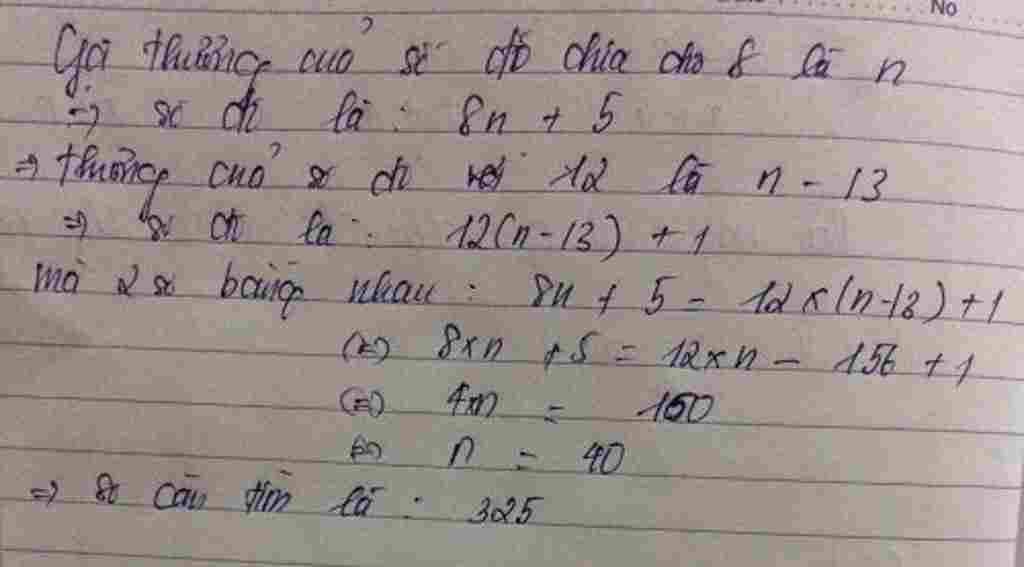 No
Gọi thưởng cuả số đó chia cho 8 là n
=> số đó là : 8n + 5
=> thưởng cuả số đó với 12 là n - 13
=> số đó là : 12(n-13) + 1
mà 2 số bằng nhau : 8n + 5 = 12x(n-13)+1
(=) 8xn + 5 = 12xn - 156 + 1
(=) 4xn = 160
(=) n = 40
=> số cần tìm là : 325